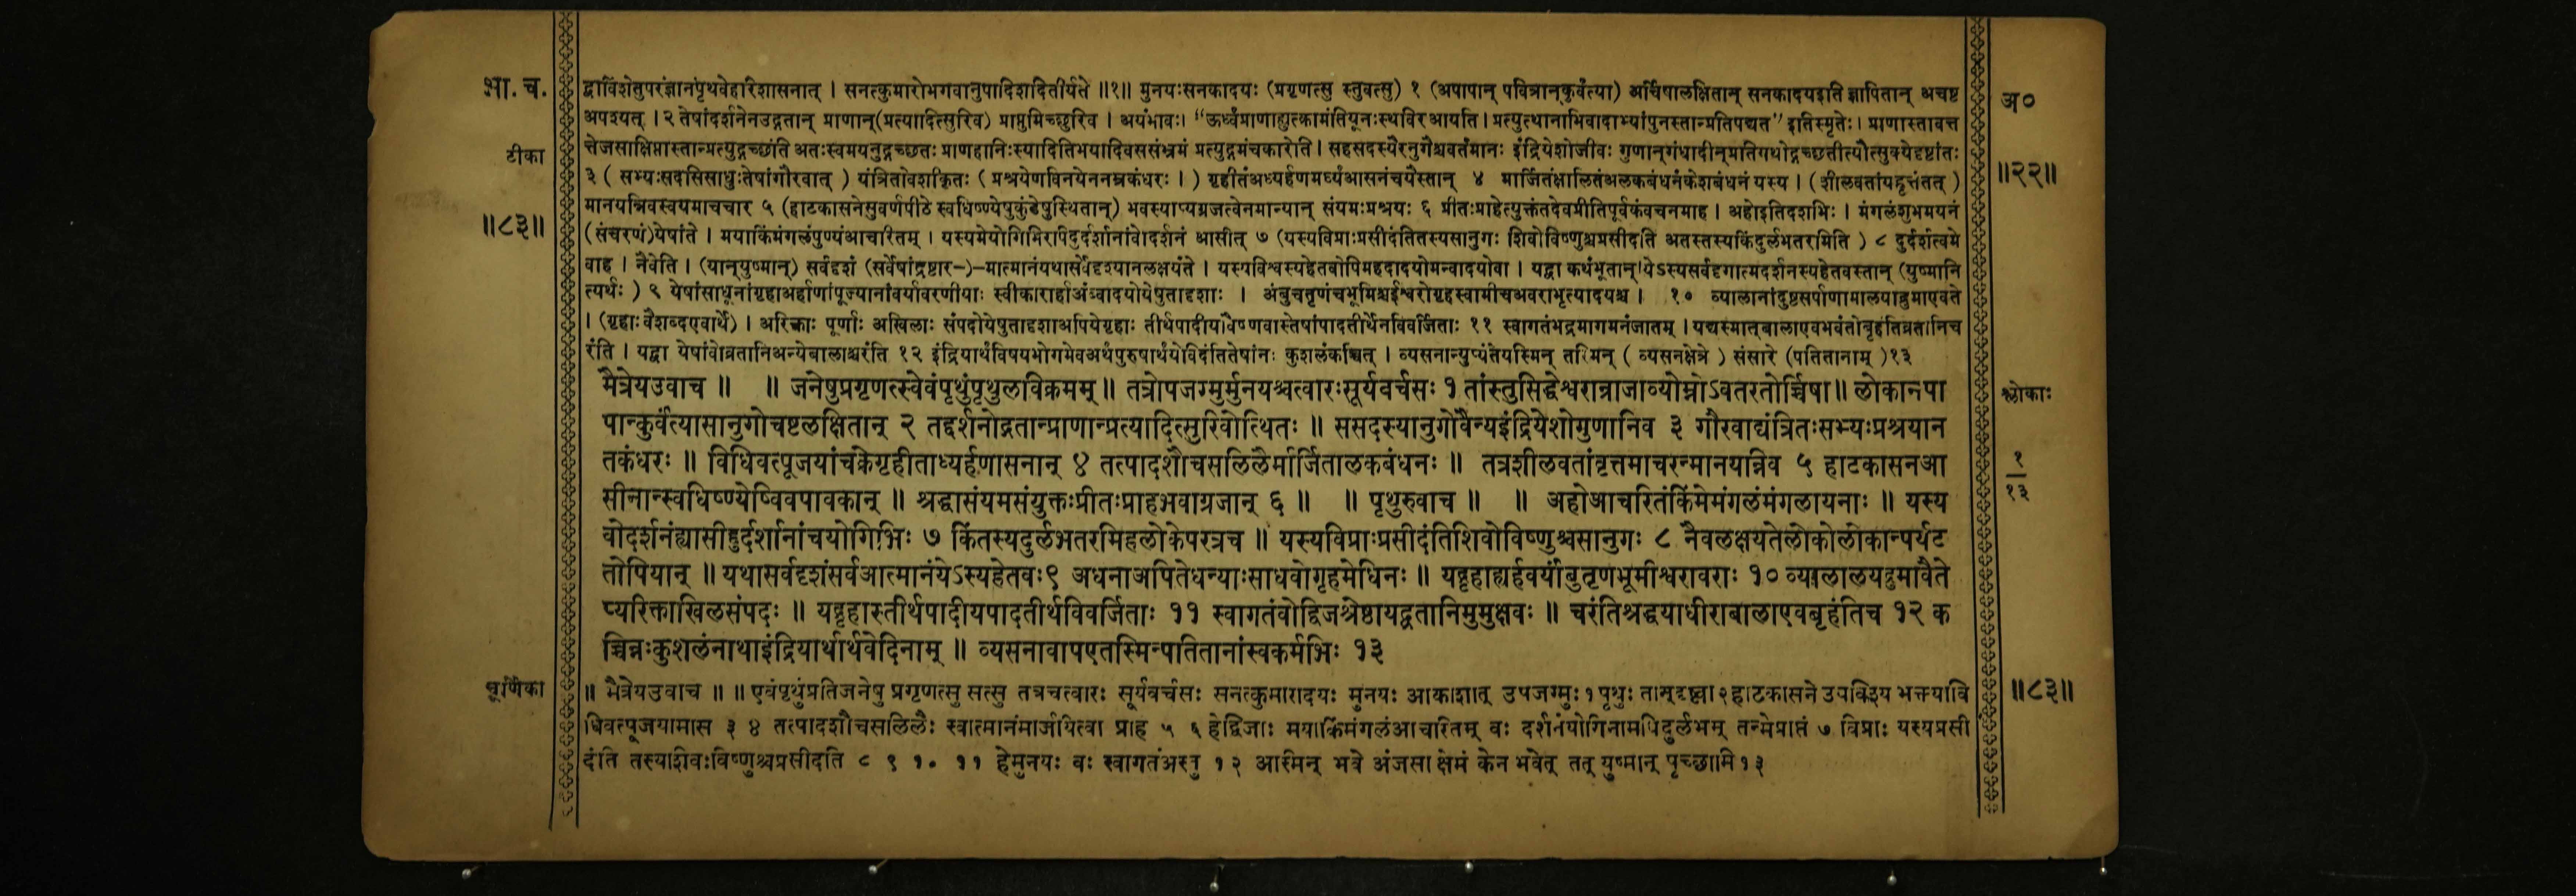 भा. च.
टीका
॥८३॥
द्वाविंशेतुपरंज्ञानंपृथवेहरिशासनात् । सनत्कुमारोभगवानुपादिशदितीर्यते ॥१॥ मुनयःसनकादयः (प्रगृणत्सु स्तुवत्सु) १ (अपापान् पवित्रान्कुर्वत्या) अर्चिषालक्षितान् सनकादयइति ज्ञापितान् अचष्ट
अपश्यत् । २ तेषांदर्शनेनउद्गतान् प्राणान्(प्रत्यादित्सुरिव) प्राप्तुमिच्छुरिव । अयंभावः। “ऊर्ध्वंप्राणाह्युत्क्रामंतियूनःस्थविरआयति । प्रत्युत्थानाभिवादाभ्यांपुनस्तान्प्रतिपद्यत” इतिस्मृतेः। प्राणास्तावत्त
त्तेजसाक्षिप्तास्तान्प्रत्युद्गच्छंति अतःस्वमयनुद्गच्छतः प्राणहानिःस्यादितिभयादिवससंभ्रमं प्रत्युद्गमंचकारेति । सहसदस्यैरनुगैश्चवर्तमानः इंद्रियेशोजीवः गुणान्गंधादीन्प्रतियथोद्गच्छतीत्यौत्सुक्येदृष्टांतः
३ ( सभ्यःसदसिसाधुःतेषांगौरवात् ) यंत्रितोवशीकृतः ( प्रश्रयेणविनयेननम्रकंधरः । ) गृहीतंअध्यर्हणमर्घ्यंआसनंचयैस्तान् ४ मार्जितंक्षालितंअलकबंधनंकेशबंधनं यस्य । (शीलवतांयद्वृत्तंतत् )
मानयन्निवस्वयमाचचार ५ (हाटकासनेसुवर्णपीठे स्वधिष्ण्येषुकुंडेषुस्थितान्) भवस्याप्यग्रजत्वेनमान्यान् संयमःप्रश्रयः ६ प्रीतःप्राहेत्युक्तंतदेवप्रीतिपूर्वकंवचनमाह । अहोइतिदशभिः । मंगलंशुभमयनं
(संचरणं)येषांते । मयाकिंमंगलंपुण्यंआचरितम् । यस्यमेयोगिभिरपिदुर्दर्शानांवोदर्शनं आसीत् ७ (यस्यविप्राःप्रसीदंतितस्यसानुगः शिवोविष्णुश्चप्रसीदति अतस्तस्यकिंदुर्लभतरमिति ) ८ दुर्दर्शत्वमे
वाह । नैवेति । (यान्युष्मान्) सर्वदृशं (सर्वेषांद्रष्टार-)-मात्मानंयथासर्वेदृश्यानलक्षयंते । यस्यविश्वस्यहेतवोपिमहदादयोमन्वादयोवा । यद्वा कथंभूतान्।येऽस्यसर्वदृगात्मदर्शनस्यहेतवस्तान् (युष्मानि
त्यर्थः ) ९ येषांसाधूनांगृहाअर्हाणांपूज्यानांवर्यावरणीयाः स्वीकारार्हाअंब्वादयोयेषुतादृशाः । अंबुचतृणंचभूमिश्चईश्वरोगृहस्वामीचअवराभृत्यादयश्च । १० व्यालानांदुष्टसर्पाणामालयाद्रुमाएवते
। (गृहाःवैशब्दएवार्थे) । अरिक्ताः पूर्णाः अखिलाः संपदोयेषुतादृशाअपियेगृहाः तीर्थपादीयावैष्णवास्तेषांपादतीर्थेनविवर्जिताः ११ स्वागतंभद्रमागमनंजातम् । यद्यस्मात्बालाएवभवंतोबृहंतिव्रतानिच
रंति । यद्वा येषांवोव्रतानिअन्येबालाश्चरंति १२ इंद्रियार्थंविषयभोगमेवअर्थंपुरुषार्थंयेविदंतितेषांनः कुशलंकच्चित् । व्यसनान्युप्यंतेयस्मिन् तस्मिन् ( व्यसनक्षेत्रे ) संसारे (पतितानाम् )१३
मैत्रेयउवाच ॥ ॥ जनेषुप्रगृणत्स्वेवंपृथुंपृथुलविक्रमम् ॥ तत्रोपजग्मुर्मुनयश्चत्वारःसूर्यवर्चसः १ तांस्तुसिद्धेश्वरान्राजाव्योम्नोऽवतरतोर्चिषा ॥ लोकानपा
पान्कुर्वंत्यासानुगोचष्टलक्षितान् २ तद्दर्शनोद्गतान्प्राणान्प्रत्यादित्सुरिवोत्थितः ॥ ससदस्यानुगोवैन्यइंद्रियेशोगुणानिव ३ गौरवाद्यंत्रितःसभ्यःप्रश्रयान
तकंधरः ॥ विधिवत्पूजयांचक्रेगृहीताध्यर्हणासनान् ४ तत्पादशौचसलिलैर्मार्जितालकबंधनः ॥ तत्रशीलवतांवृत्तमाचरन्मानयान्निव ५ हाटकासनआ
सीनान्स्वधिष्ण्येष्विवपावकान् ॥ श्रद्धासंयमसंयुक्तःप्रीतःप्राहभवाग्रजान् ६ ॥ ॥ पृथुरुवाच ॥ ॥ अहोआचरितंकिंमेमंगलंमंगलायनाः ॥ यस्य
वोदर्शनंह्यासीद्दुर्दर्शानांचयोगिभिः ७ किंतस्यदुर्लभतरमिहलोकेपरत्रच ॥ यस्यविप्राःप्रसीदंतिशिवोविष्णुश्चसानुगः ८ नैवलक्षयतेलोकोलोकान्पर्यट
तोपियान् ॥ यथासर्वदृशंसर्वआत्मानंयेऽस्यहेतवः९ अधनाअपितेधन्याःसाधवोगृहमेधिनः ॥ यद्गृहाह्यर्हवर्यांबुतृणभूमीश्वरावराः १० व्यालालयद्रुमावैते
प्यरिक्ताखिलसंपदः ॥ यद्गृहास्तीर्थपादीयपादतीर्थविवर्जिताः ११ स्वागतंवोद्विजश्रेष्ठायद्व्रतानिमुमुक्षवः ॥ चरंतिश्रद्धयाधीराबालाएवबृहंतिच १२ क
च्चिन्नःकुशलंनाथाइंद्रियार्थार्थवेदिनाम् ॥ व्यसनावापएतस्मिन्पतितानांस्वकर्मभिः १३
चूर्णिका
॥ मैत्रेयउवाच ॥ ॥ एवंपृथुंप्रतिजनेषु प्रगृणत्सु सत्सु तत्रचत्वारः सूर्यवर्चसः सनत्कुमारादयः मुनयः आकाशात् उपजग्मुः १ पृथुः तान्दृष्ट्वा २ हाटकासने उपविश्य भक्त्यावि
धिवत्पूजयामास ३ ४ तत्पादशौचसलिलैः स्वात्मानंमार्जयित्वा प्राह ५ ६ हेद्विजाः मयाकिंमंगलंआचरितम् वः दर्शनंयोगिनामपिदुर्लभम् तन्मेप्राप्तं ७ विप्राः यस्यप्रसी
दंति तस्याशिवःविष्णुश्चप्रसीदति ८ ९ १० ११ हेमुनयः वः स्वागतंअस्तु १२ अस्मिन् भवे अंजसा क्षेमं केन भवेत् तत् युष्मान् पृच्छामि १३
अ०
॥२२॥
श्लोकाः
१
१३
॥८३॥